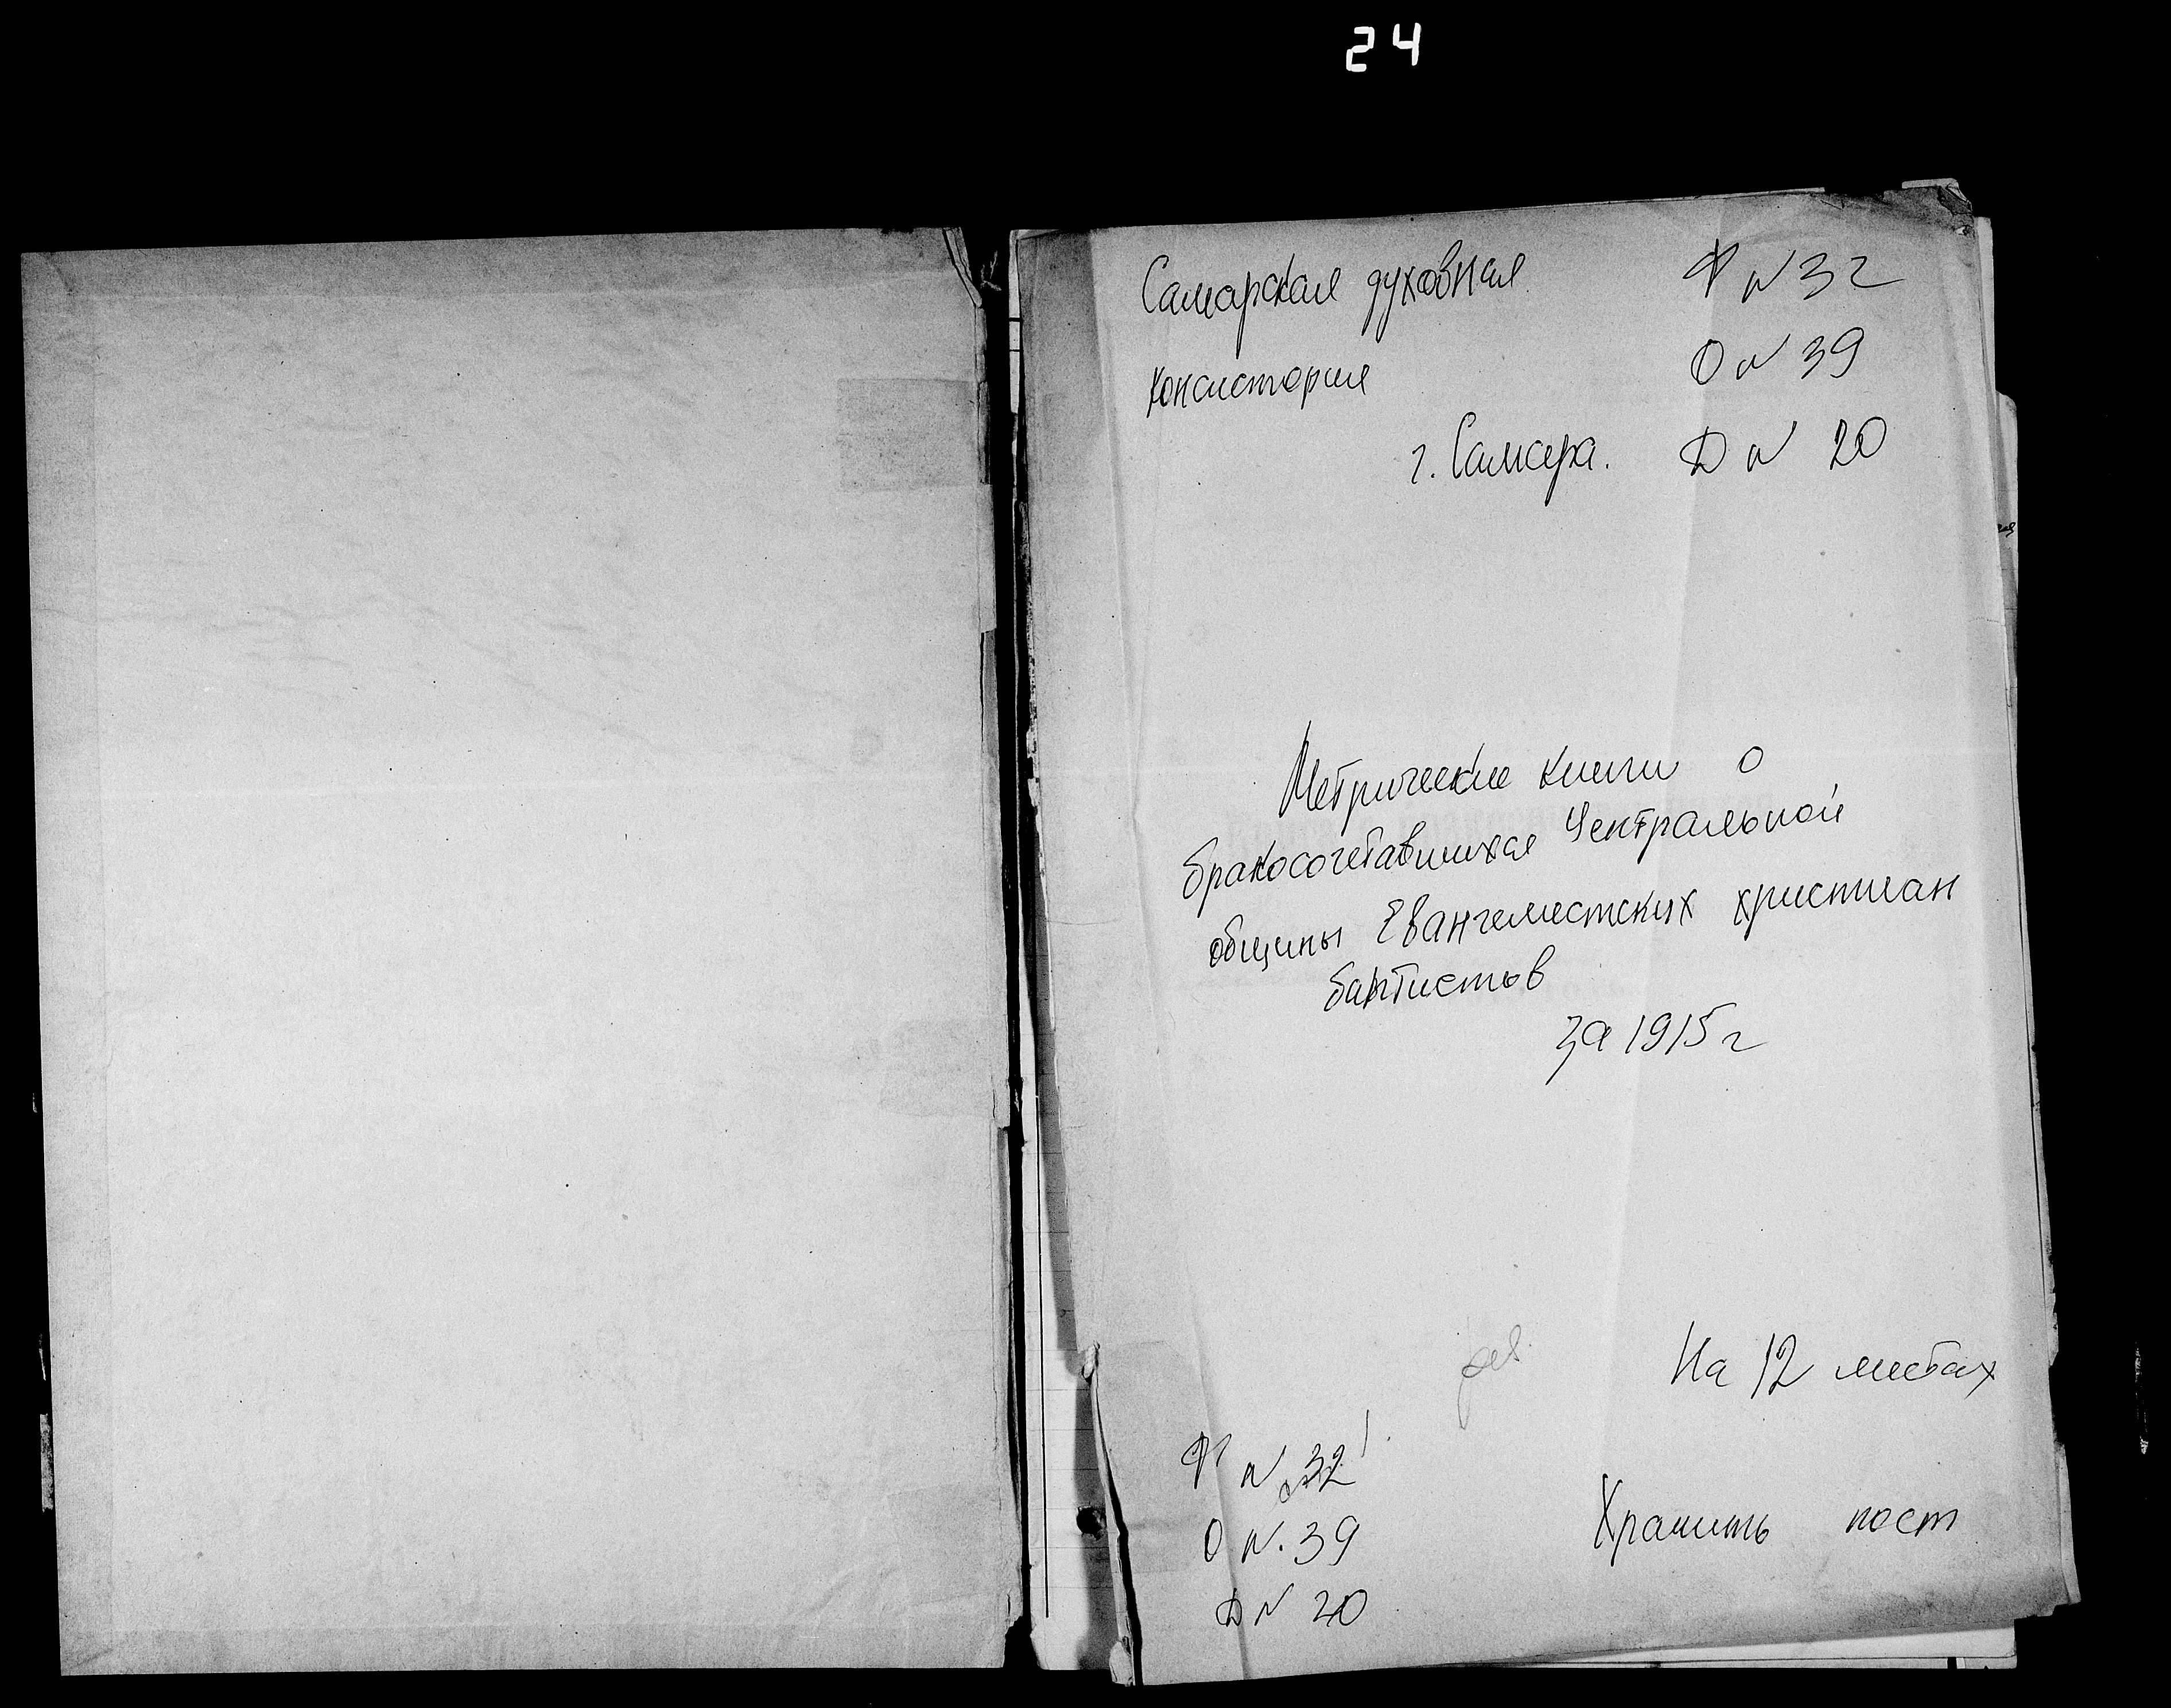 24
Самарская духовная Ф N 32
консистория О N 39
г. Самара. Д N 20
Метрические книги о
бракосочетавшихся Центральной
общины Евангелистских христиан
баптистов
за 1915 г
На 12 листах
Ф N 32
О N. 39
Хранить пост
Д N 20